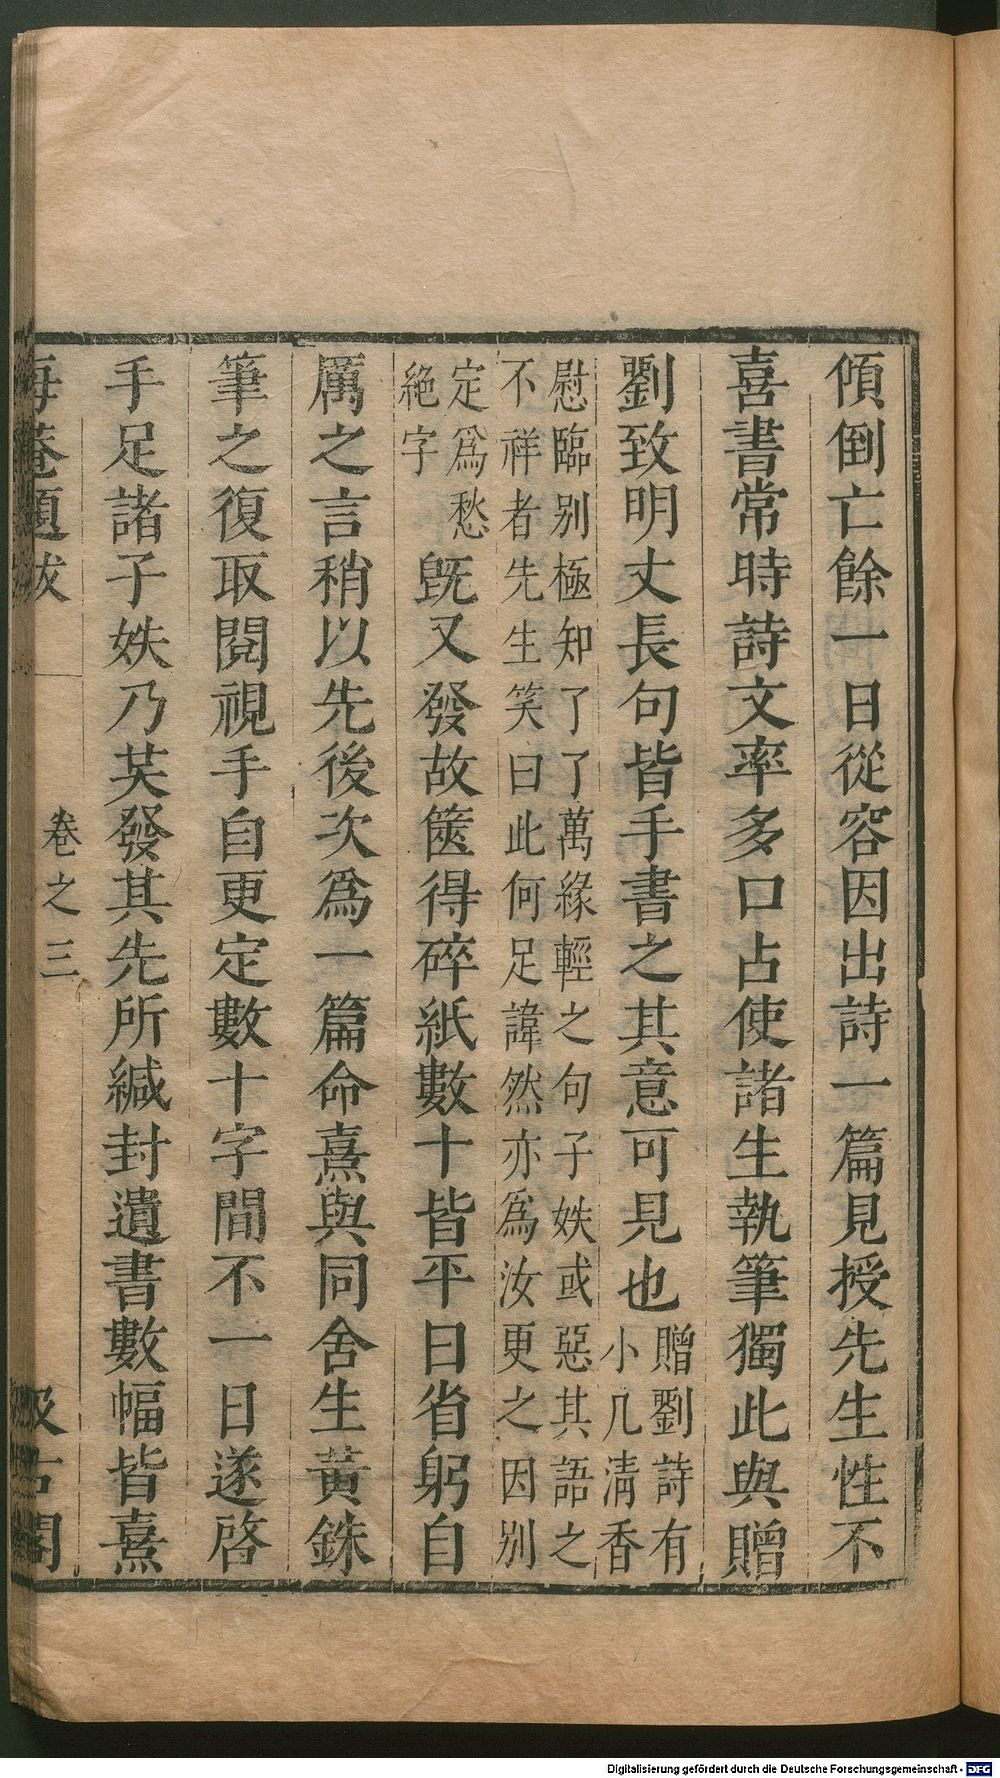 傾倒亡餘一日從容因出詩一篇見授先生性不
喜書常時詩文率多口占使諸生執筆獨此與贈
劉致明丈長句皆手書之其意可見也
贈劉詩有
小几淸香
慰臨别極知了了萬緣輕之句子妷或惡其語之
不祥者先生笑曰此何足諱然亦爲汝更之因别
定爲愁
絶字
既又發故篋得碎紙數十皆平日省躬自
厲之言稍以先後次爲一篇命熹與同舍生黃銖
筆之復取閱視手自更定數十字間不一日遂啓
手足諸子妷乃芺發其先所緘封遺書數幅皆熹
晦菴題跋
卷之三
汲古閣
Digitalisierung gefördert durch die Deutsche Forschungsgemeinschaft - DFG